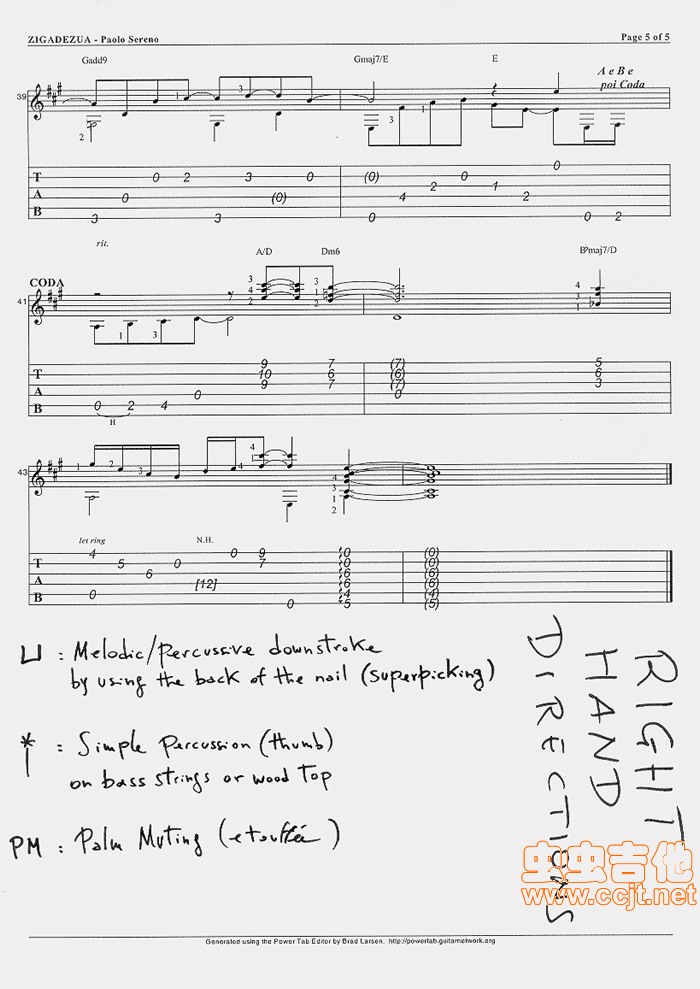 ZIGADEZUA - Paolo Sereno
Page 5 of 5
Gadd9 Gmaj7/E E
A e B e
poi Coda
39
2 1 3
T A B
3 0 0 2 3 3 (0) 0 (0) 0 4 2 0 1 2 0 0 2
rit.
CODA
A/D Dm6 B♭maj7/D
41
1 3
T A B
0 2 4 0 9 10 9 7 6 7 (7) (6) (7) 0 5 6 3
H
43
let ring N.H.
T A B
4 0 5 6 0 [12] 0 9 7 0 0 0 6 6 4 5 (0) (0) (6) (6) (4) (5)
⊔ : Melodic/percussive downstroke
by using the back of the nail (superpicking)
* : Simple Percussion (thumb)
on bass strings or wood top
PM : Palm Muting (etouffée)
RIGHT
HAND
DIRECTIONS
虫虫吉他
www.ccjt.net
Generated using the Power Tab Editor by Brad Larsen. http://powertab.guitarnetwork.org